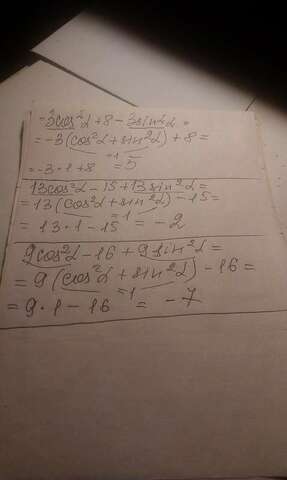 -3cos²α+8-3sin²α=
=-3(cos²α+sin²α)+8=
=1
=-3·1+8 = 5
13cos²α-15+13sin²α=
=13(cos²α+sin²α)-15=
=1
=13·1-15= -2
9cos²α-16+9sin²α=
=9(cos²α+sin²α)-16=
=1
=9·1-16 = -7